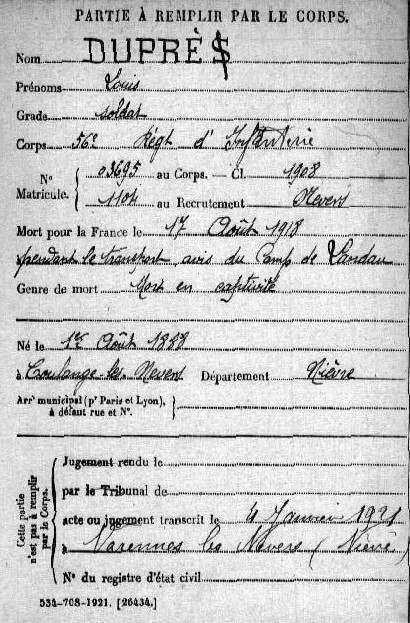 PARTIE À REMPLIR PAR LE CORPS.
Nom DUPRÈS
Prénoms Louis
Grade soldat
Corps 56e Régt d' Infanterie
N° Matricule. { 03695 au Corps. — Cl. 1908
1104 au Recrutement Nevers
Mort pour la France le 17 Août 1918
pendant le transport avis du Camp de Landau
Genre de mort Mort en captivité
Né le 1er Août 1888
à Coulange-les-Nevers Département Nièvre
Arrt municipal (pr Paris et Lyon), à défaut rue et N°. }
Cette partie n'est pas à remplir par le Corps.
Jugement rendu le
par le Tribunal de
acte ou jugement transcrit le 4 Janvier 1921
à Varennes les Nevers (Nièvre)
N° du registre d'état civil
534-708-1921. [26434.]